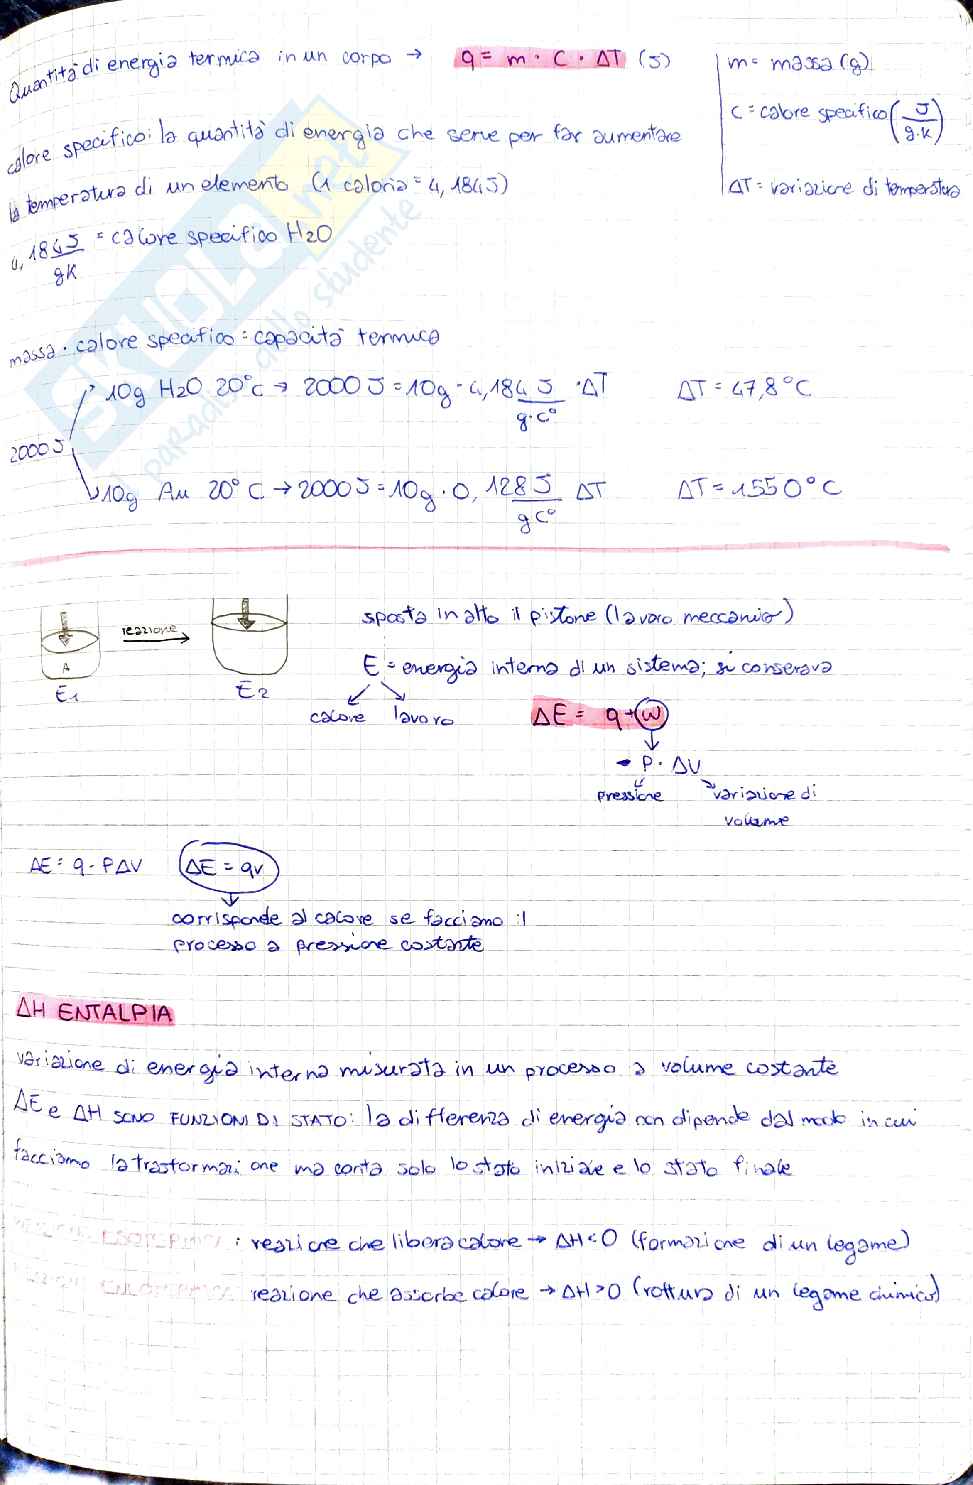 Quantità di energia termica in un corpo → q = m · C · ΔT (J)
m = massa (g)
C = calore specifico (J/g·K)
ΔT = variazione di temperatura
calore specifico: la quantità di energia che serve per far aumentare
la temperatura di un elemento (1 caloria = 4,184J)
4,184J/gK = calore specifico H2O
massa · calore specifico = capacità termica
2000J
10g H2O 20°C → 2000J = 10g · 4,184J/g·C° · ΔT ΔT = 47,8°C
10g Au 20°C → 2000J = 10g · 0,128J/gC° ΔT ΔT = 1550°C
SKUOLA.net
il paradiso dello studente
A
reazione
E1
E2
sposta in alto il pistone (lavoro meccanico)
E = energia interna di un sistema; si conserva
calore lavoro
ΔE = q + w
- P · ΔV
pressione variazione di
volume
ΔE = q - PΔV ΔE = qv
corrisponde al calore se facciamo il
processo a pressione costante
ΔH ENTALPIA
variazione di energia interna misurata in un processo a volume costante
ΔE e ΔH SONO FUNZIONI DI STATO: la differenza di energia non dipende dal modo in cui
facciamo la trasformazione ma conta solo lo stato iniziale e lo stato finale
ESOTERMICA : reazione che libera calore → ΔH<0 (formazione di un legame)
ENDOTERMICA reazione che assorbe calore → ΔH>0 (rottura di un legame chimico)